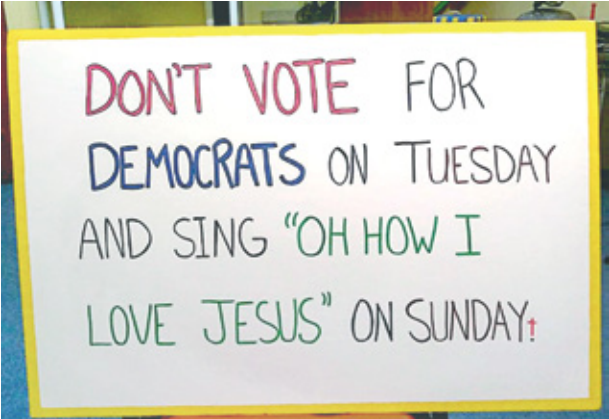 DON'T VOTE FOR
DEMOCRATS ON TUESDAY
AND SING "OH HOW I
LOVE JESUS" ON SUNDAY.